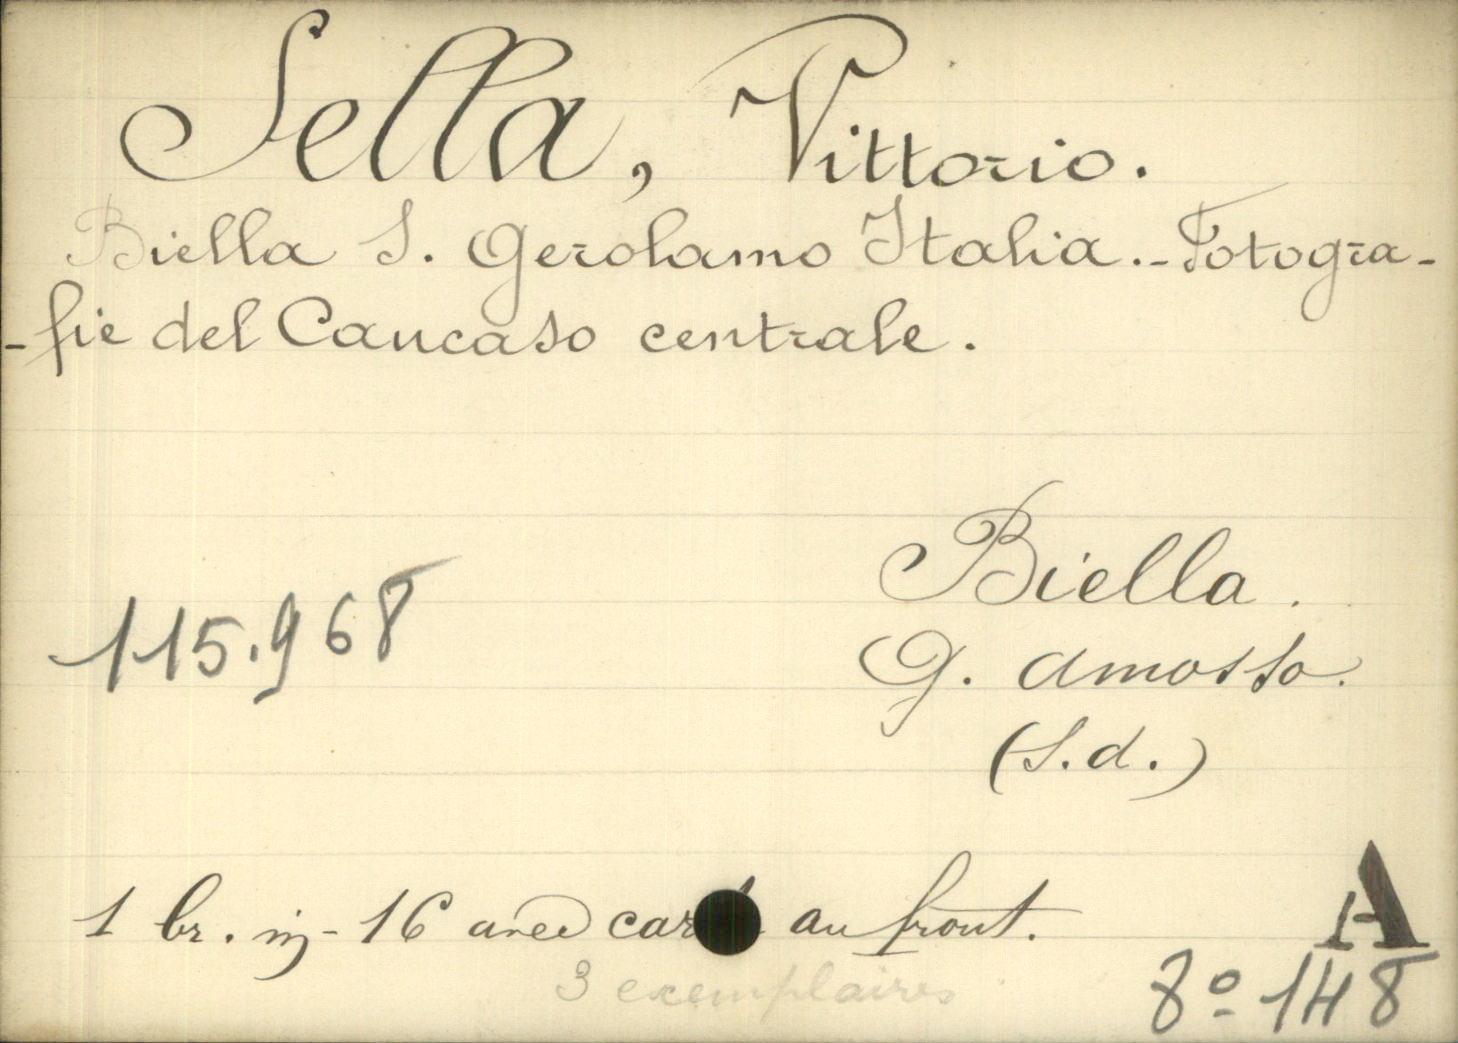 Sella, Vittorio.
Biella S. Gerolamo Italia. - Fotogra-
-fie del Caucaso centrale.
Biella.
115.968
G. Amosso.
(S.d.)
1 br. in-16 avec au front.
A
3 exemplaires
8º 148